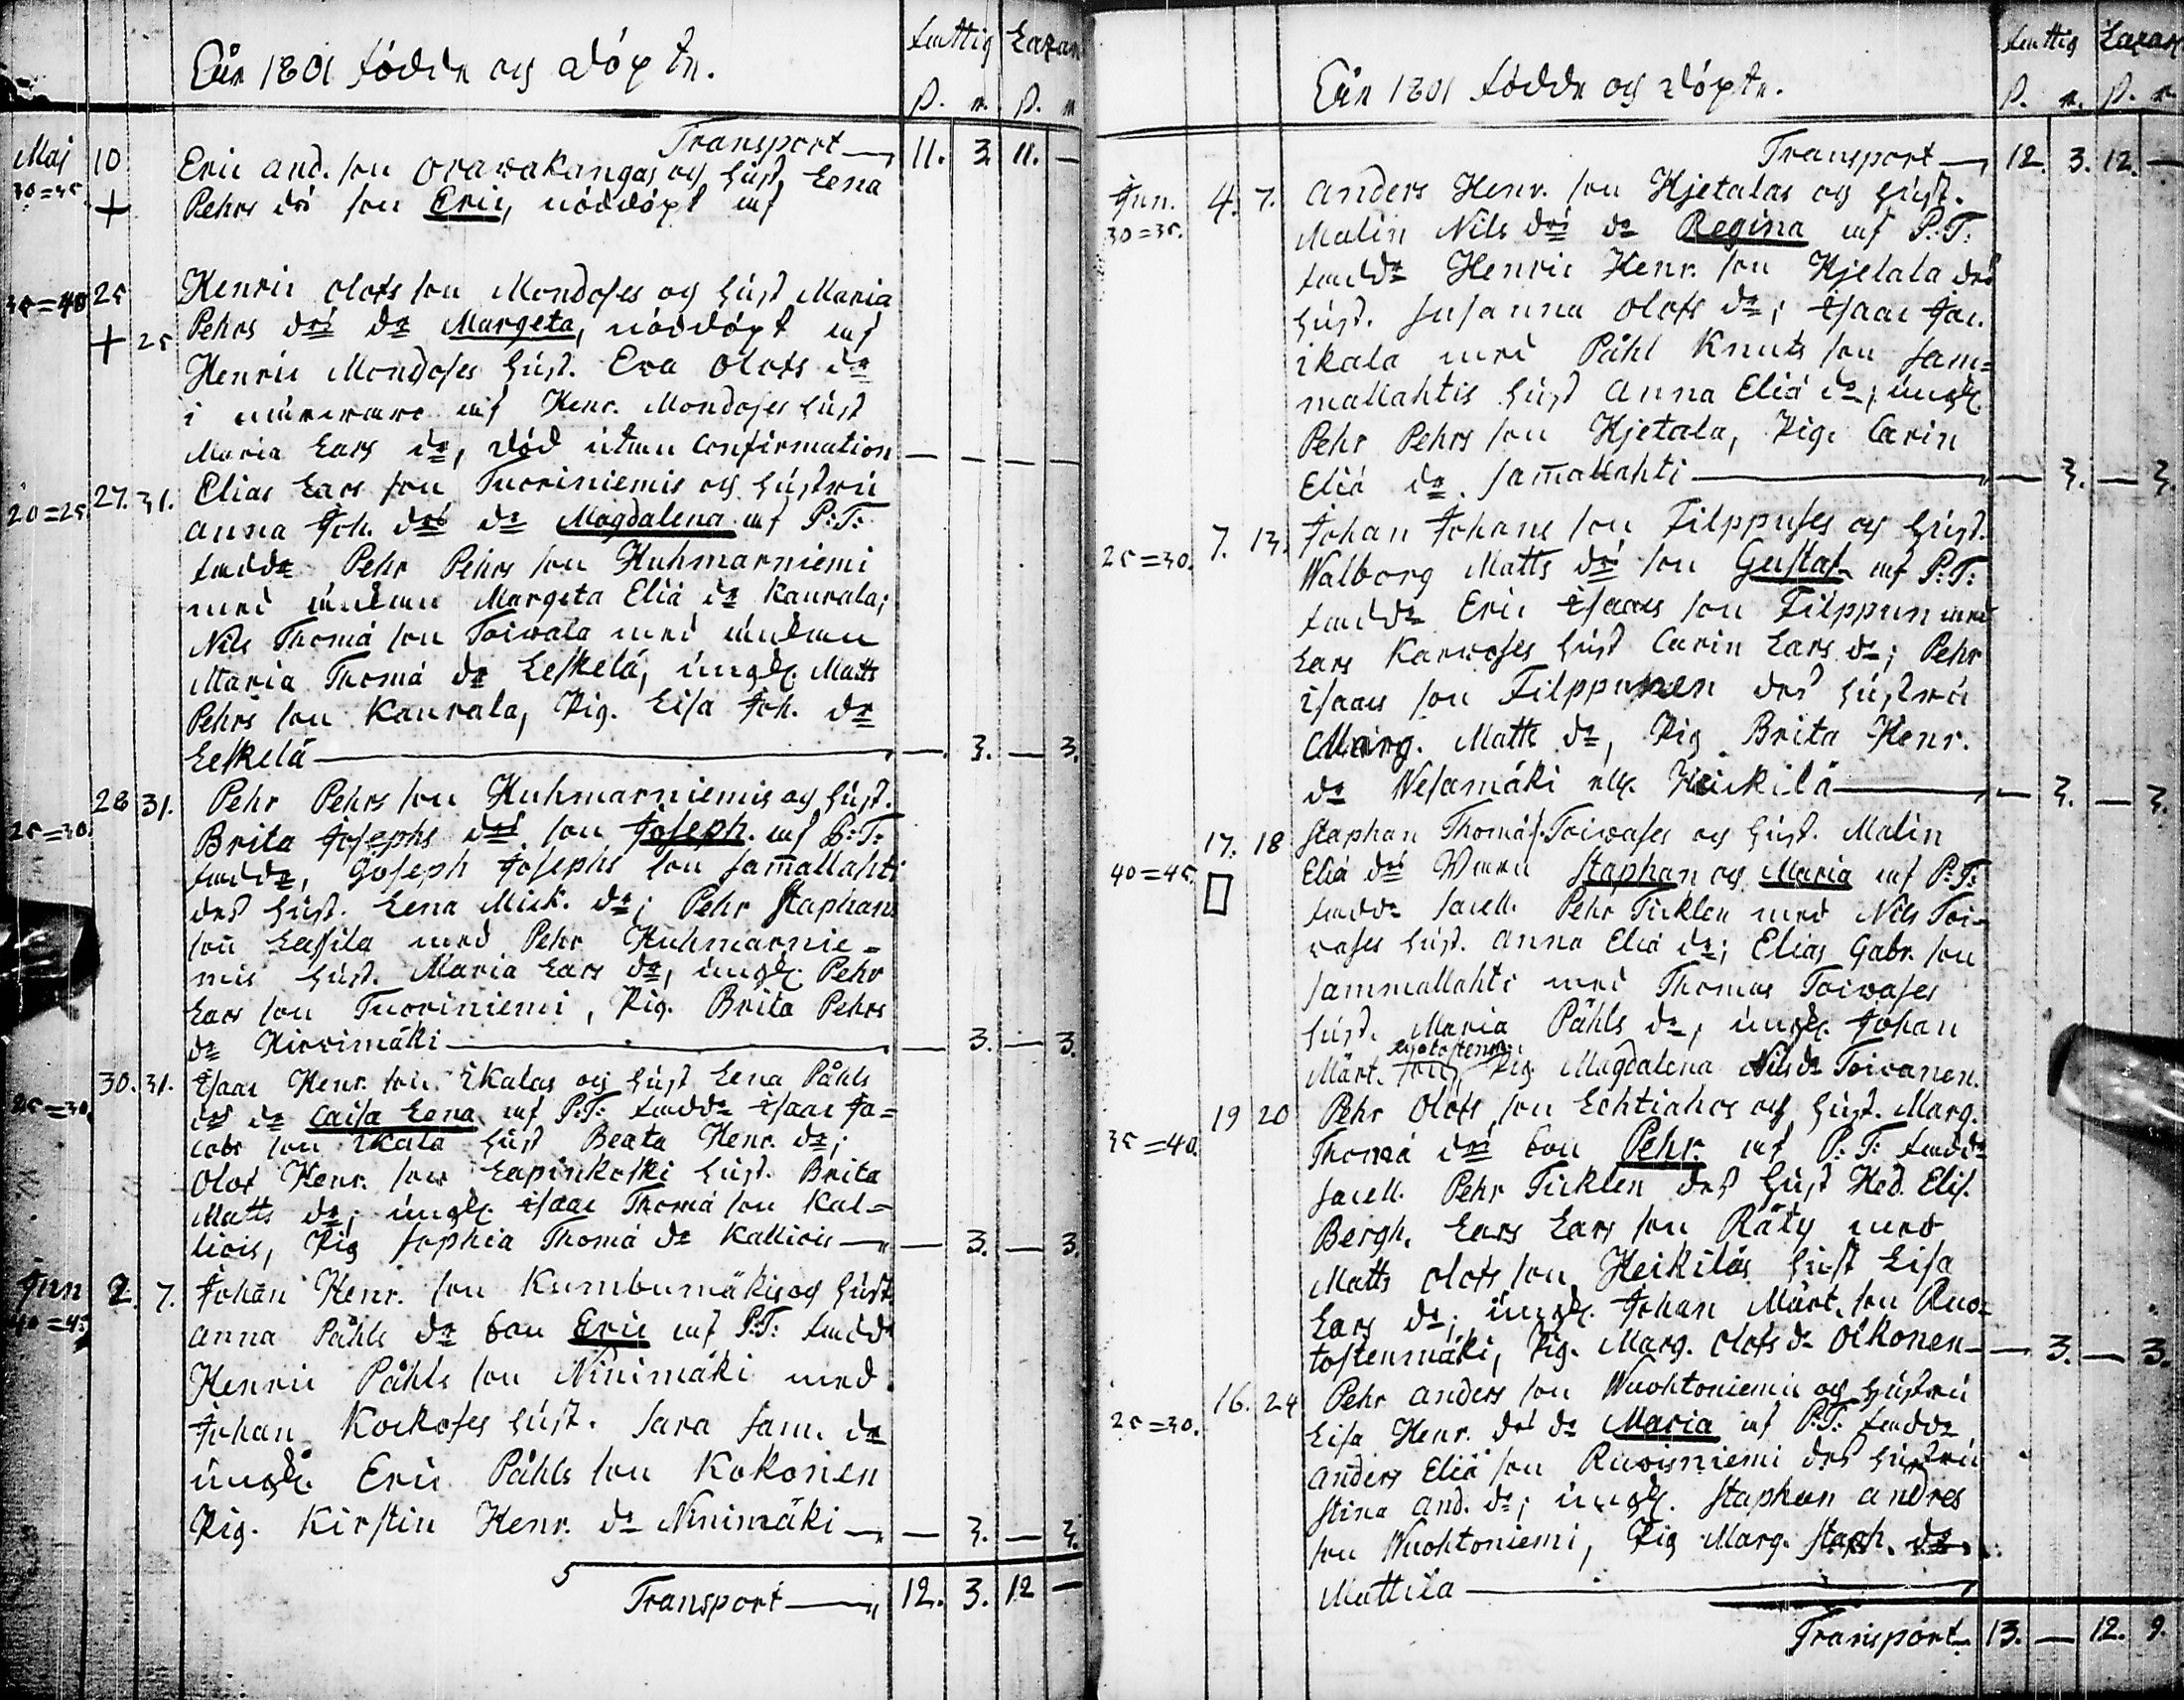 År 1801 födde og döpte.
fattig Lazar
ß. r. ß. r
Transport 11. 3 11. —
Maj 10 Eric And. son Oravakangas og hust. Lena
30=35. + Pehrs dr son Eric, nöddöpt af
35=40 25 Henric Olofs son Mondoses og hust Maria
+ 25 Pehrs drs dr Margeta, nöddöpt af
Henric Mondoses hust. Eva Olofs dr
i närvaro af Henr. Mondoses hust
Maria Lars dr, död utan Confirmation — — — —
20=25. 27. 31. Elias Lars son Tuoriniemis og hustru
Anna Joh. drs dr Magdalena af P:T:
fadd: Pehr Pehrs son Huhmarniemi
med änkan Margeta Eliä dr Kaurala;
Nils Thomä son Toivala med änkan
Maria Thomä dr Leskelä, ungk. Matts
Pehrs son Kaurala, Pig. Lisa Joh. dr
Leskelä — — 3. — 3.
28 31. Pehr Pehrs son Huhmarniemis og hust.
25=30. Brita Josephs drs son Joseph. af P:T:
fadd:, Joseph Josephs son Sammallahti
des hust. Lena Mick. dr; Pehr Staphans
son Lassila med Pehr Huhmarnie=
mis hust. Maria Lars dr, ungk. Pehr
Lars son Tuoriniemi, Pig. Brita Pehrs
dr Hirvimäki — — 3. — 3.
30. 31. Isaac Henr. son Ikalas og hust Lena Påhls
25=30. drs dr Caisa Lena af P.T: fadd: Isaac Ja=
cobs son Ikala hust Beata Henr. dr;
Olof Henr. son Lapinkoski hust. Brita
Matts dr; ungk. Isaac Thomä son Kal=
liois, Pig Sophia Thomä dr Kalliois — — 3. — 3.
Jun 2. 7. Johan Henr. son Kumbumäkis og hust.
40=45 Anna Påhls dr son Eric af P.T: fadd:
Henric Påhls son Ninimäki med
Johan Kockoses hust. Sara Sam. dr
ungk. Eric Påhls son Kokoinen
Pig. Kirstin Henr. dr Ninimäki — — 3. — 3.
5
Transport — 12. 3. 12 —
År 1801 födde og döpte.
fattig Lazar
ß. r. ß. r.
Transport — 12. 3. 12. —
Jun. 4. 7. Anders Henr. son Hjetalas og hust.
30=35. Malin Nils drs dr Regina af P:T:
fadd: Henric Henr. son Hjelala des
hust. Susanna Olofs dr; Isaac Jac.
ikala med Påhl Knuts son Sam=
mallahtis hust Anna Eliä dr; ungk.
Pehr Pehrs son Hjetala, Pig. Carin
Eliä dr. Sammallahti — — 3. — 3.
7. 13. Johan Johans son Filppuses og hust.
25=30. Walborg Matts drs son Gustaf af P:T:
fadd: Eric Isaacs son Filppun med
Lars Karvoses hust Carin Lars dr; Pehr
Isaacs son Filppunen des hustru
Marg. Matts dr, Pig Brita Henr.
dr Wesamäki ell. Heickilä — — 3. — 3.
17. 18 Staphan Thomä s. Toivases og hust. Malin
40=45. Eliä drs Barn Staphan og Maria af P:T:
fadd: Sacell. Pehr Ticklen med Nils Toi=
vases hust. Anna Eliä dr; Elias Gabr. son
Sammallahti med Thomas Toivases
hust. Maria Påhls dr; ungk. Johan
Märt. son Pig Magdalena Nils dr Toivanen.
19 20 Pehr Olofs son Lehtiahos og hust. Marg.
35=40. Thomä drs son Pehr. af P:T: fadd:
Sacell. Pehr Ticklen des hust Hed. Elis.
Bergh. Lars Lars son Räty med
Matts Olofs son Heikiläs hust Lisa
Lars dr; ungk. Johan Märt. son Ruo=
tostenmäki, Pig. Marg. Olofs dr Oikonen — — 3. — 3.
16. 24 Pehr Anders son Wuohtoniemis og hustru
25=30. Lisa Henr. drs dr Maria af P:T: fadd:
Anders Eliä son Ruoisniemi des hustru
Stina And. dr; ungk. Staphan Andres
son Wuohtoniemi, Pig Marg. Staph. dr
Mattila —
Transport. 13. — 12. 9.